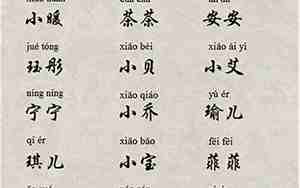 小暖 茶茶 安安
jué tóng xiǎo bèi xiǎo ài yì
珏彤 小贝 小艾
níng níng xiǎo qiáo yú ér
宁宁 小乔 瑜儿
qí ér xiǎo bǎo fēi fēi
琪儿 小宝 菲菲